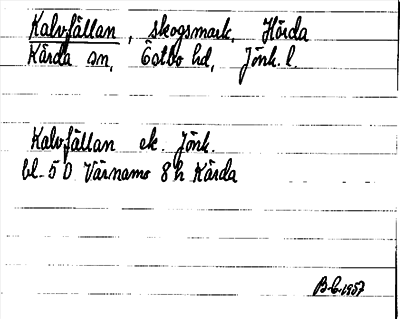 Kalvfällan, skogsmark. Hörda
Kärda sn, Östbo hd, Jönk. l.
Kalvfällan ek. Jönk.
bl. 5 D Värnamo 8 h Kärda
B-C. 1957